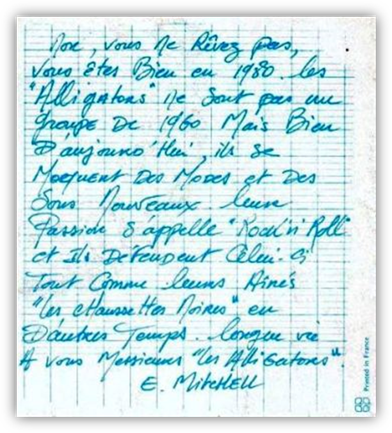 Non, vous ne Rêvez pas,
vous êtes Bien en 1980. les
"Alligators" ne sont pas un
groupe De 1960 Mais Bien
D'aujourd'hui, ils se
Moquent Des Modes et Des
Sons Nouveaux leur
Passion s'appelle "Rock'n'Roll"
et ils Défendent Celui-ci
Tout Comme leurs Aînés
"les chaussettes Noires" en
D'autres Temps.. longue vie
A vous Messieurs "les Alligators".
E. MitcHELL
Printed in France